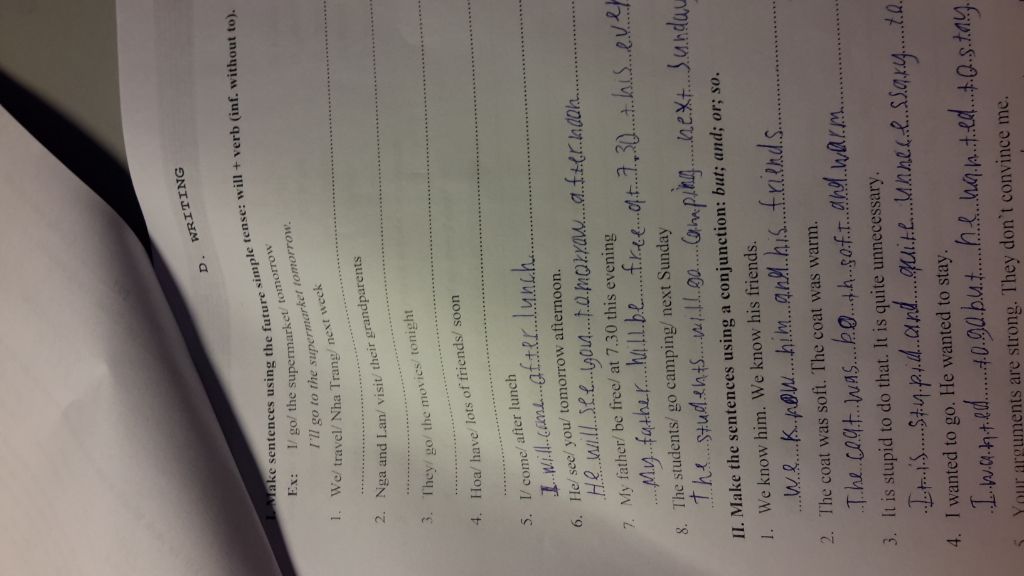 D. WRITING
I. Make sentences using the future simple tense: will + verb (inf. without to).
Ex: I/ go/ the supermarket/ tomorrow
I'll go to the supermarket tomorrow.
1. We/ travel/ Nha Trang/ next week
2. Nga and Lan/ visit/ their grandparents
3. They/ go/ the movies/ tonight
4. Hoa/ have/ lots of friends/ soon
5. I/ cone/ after lunch
I will cone after lunch
6. He/ see/ you/ tomorrow afternoon.
He will see you tomorrow afternoon
7. My father/ be free/ at 7.30 this evening
My father will be free at 7.30 this
8. The students/ go camping/ next Sunday
The students will go camping next Sunday
II. Make the sentences using a conjunction: but; and; or; so.
1. We know him. We know his friends.
We know him and his friends
2. The coat was soft. The coat was warm.
The coat was both soft and warm
3. It is stupid to do that. It is quite unnecessary.
It is stupid and quite unnecessary to
4. I wanted to go. He wanted to stay.
I wanted to go but he wanted to stay.
5. Your arguments are strong. They don't convince me.